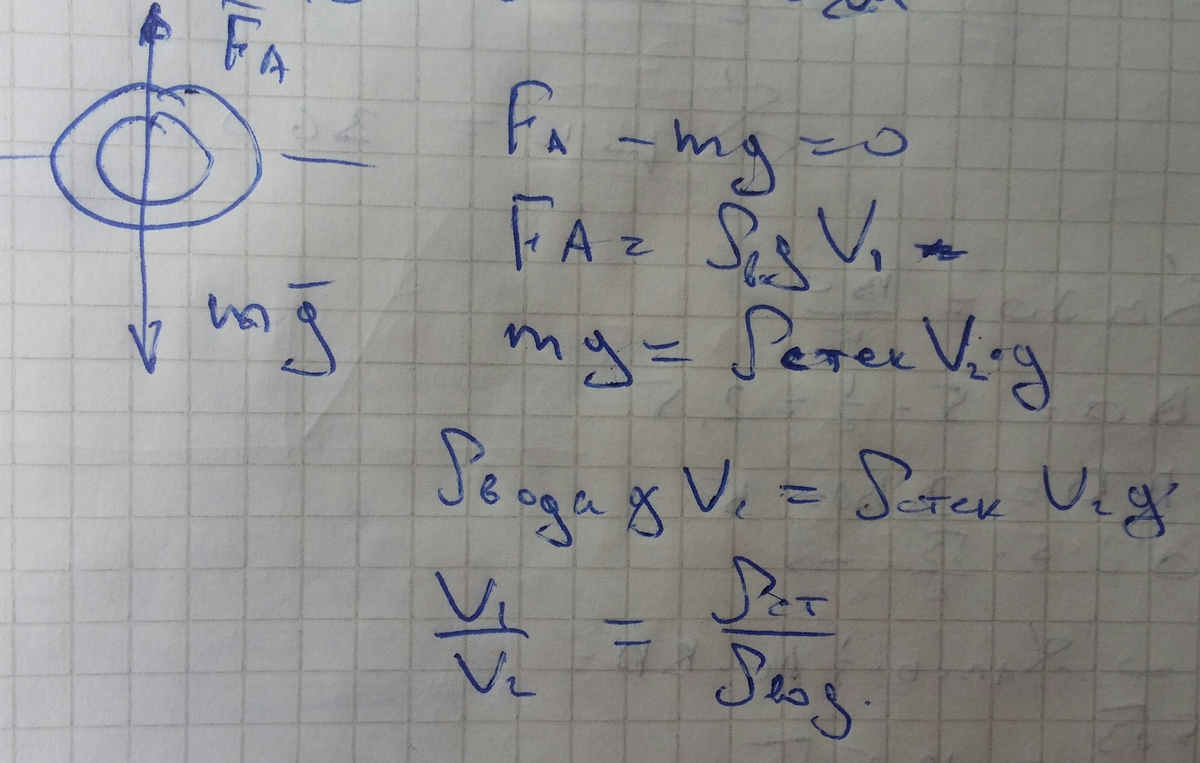 F̅A
FA - mg = 0
FA = ρвg V₁
mg̅
mg = ρстек V₂·g
ρвода g V₁ = ρстек V₂ g
V₁/V₂ = ρст/ρвод.